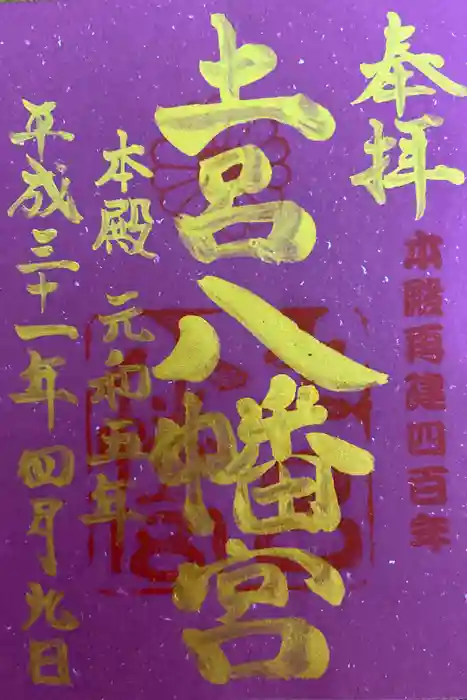 奉拝
本殿再建四百年
土呂八幡宮
本殿 元和五年
平成三十一年 四月九日